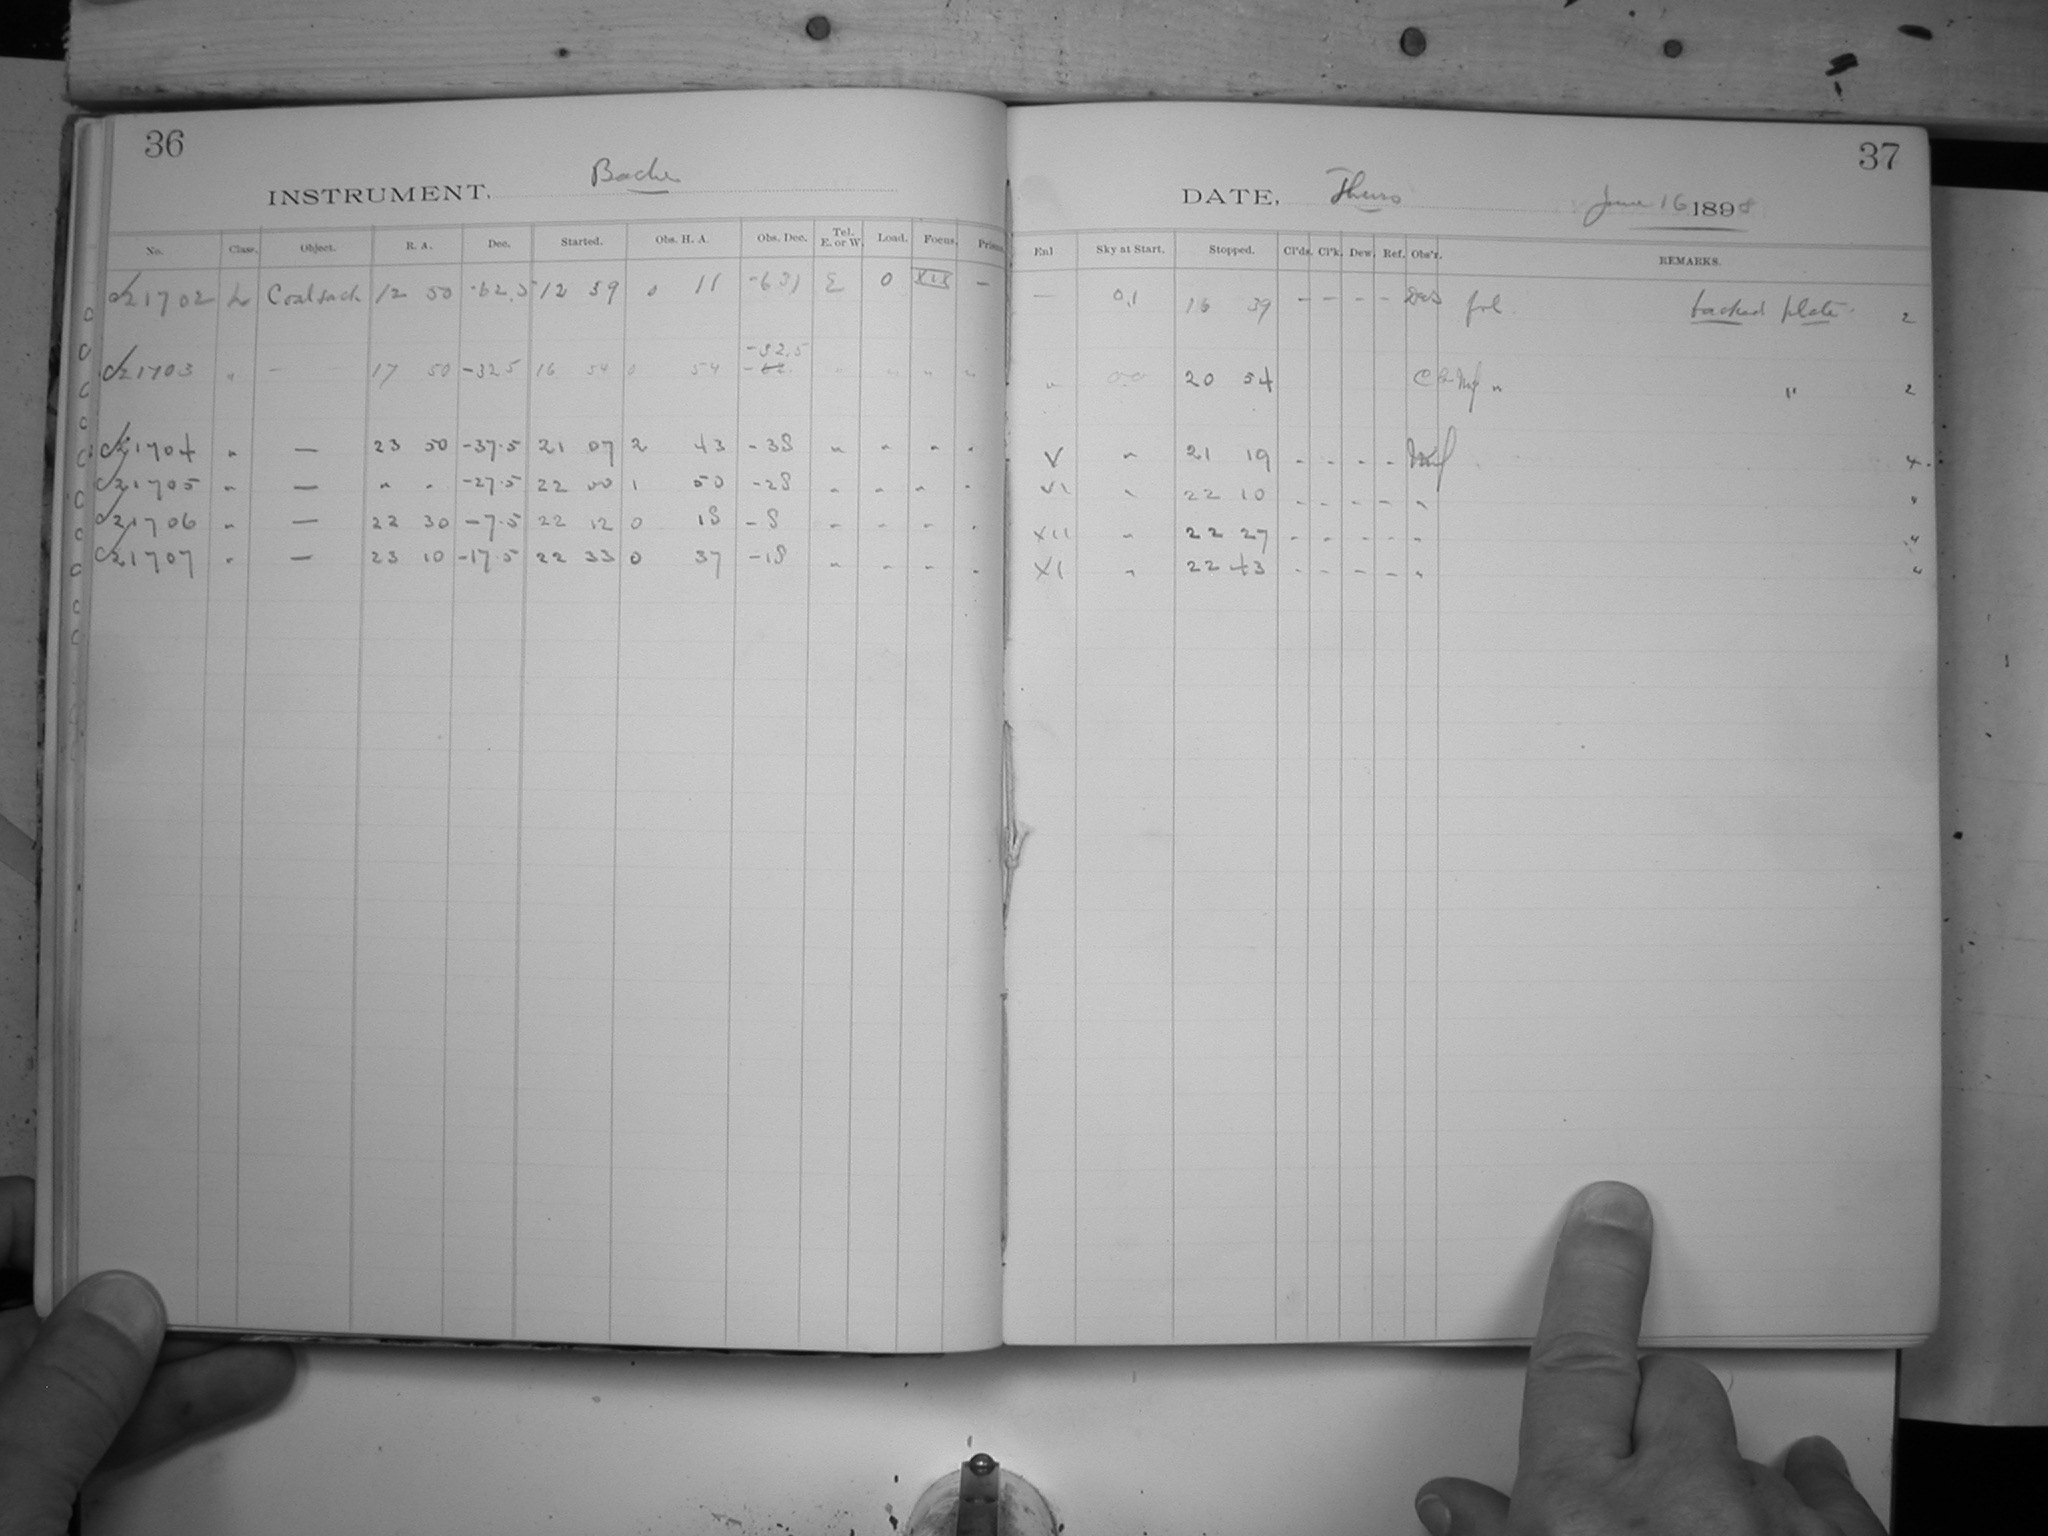 36
Bache
INSTRUMENT,
No. Class. Object. R. A. Dec. Started. Obs. H. A. Obs. Dec. Tel. E. or W. Load. Focus. Prism
21702 L Coalsack 12 50 -62.5 12 59 0 11 E 0 XIX —
-32.5
21703 " — 17 50 -32.5 16 54 0 54 " " " "
21704 " — 23 50 -37.5 21 07 2 43 -38 " " " "
21705 " — " " -27.5 22 00 1 50 -28 " " " "
21706 " — 22 30 -7.5 22 12 0 18 -8 " " " "
21707 " — 23 10 -17.5 22 33 0 37 -18 " " " "
37
DATE, Thurs June 16 1898
Enl Sky at Start. Stopped. Cl'ds. Cl'k. Dew. Ref. Obs'r. REMARKS.
— 0.1 16 39 - - - - backed plate. 2
" 0.0 20 54 " " 2
V " 21 19 - - - - 4
VI " 22 10 - - - - " "
XII " 22 27 - - - - " "
XI " 22 43 - - - - " "